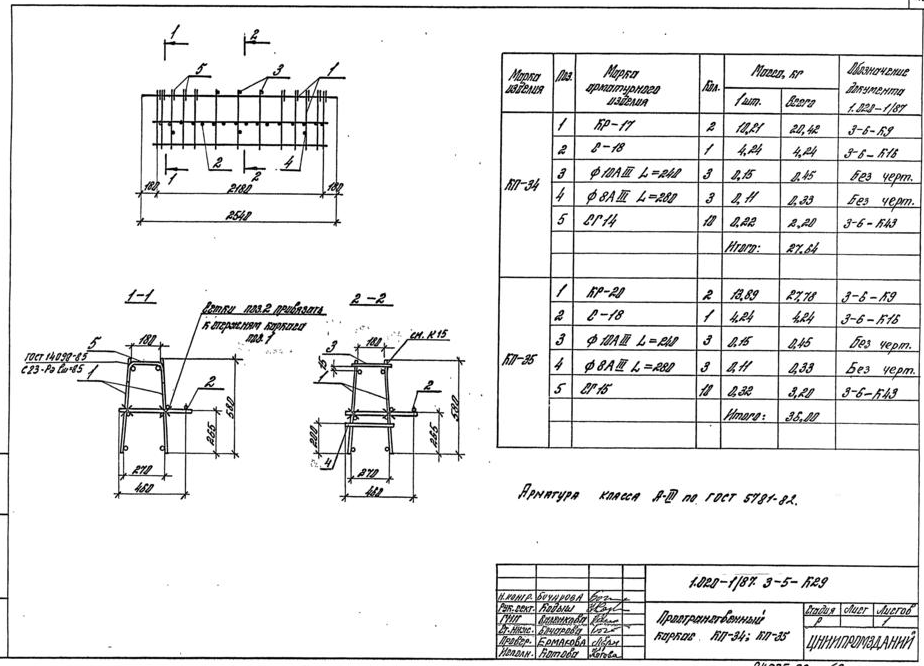 1 2
5 3 1
1 2 2 4
180 2180 180
2540
1-1
Сетки поз.2 привязать
к стержням каркаса
поз.1
5 180
ГОСТ 14098-85
1 2
580
265
270
460
2-2
см. К15
3 180
1 2
580
200 265
4 270
460
Марка изделия Поз. Марка арматурного изделия Кол. Масса, кг Обозначение документа
1 шт. Всего 1.020-1/87
КП-34
1 КР-17 2 10,21 20,42 3-6-К9
2 С-18 1 4,24 4,24 3-6-К16
3 ф10АIII L=240 3 0,15 0,45 Без черт.
4 ф8АIII L=280 3 0,11 0,33 Без черт.
5 СГ14 10 0,22 2,20 3-6-К43
Итого: 27,64
КП-35
1 КР-20 2 13,89 27,78 3-6-К9
2 С-18 1 4,24 4,24 3-6-К16
3 ф10АIII L=240 3 0,15 0,45 Без черт.
4 ф8АIII L=280 3 0,11 0,33 Без черт.
5 СГ15 10 0,32 3,20 3-6-К43
Итого: 36,00
Арматура класса А-III по ГОСТ 5781-82.
1.020-1/87. 3-5-К29
Н.контр. Бочарова
Рук.сект.
ГИП
Ст.инж. Бочарова
Провер. Ермакова
Исполн. Котова
Пространственный
каркас КП-34; КП-35
Стадия Лист Листов
Р 1
ЦНИИПРОМЗДАНИЙ